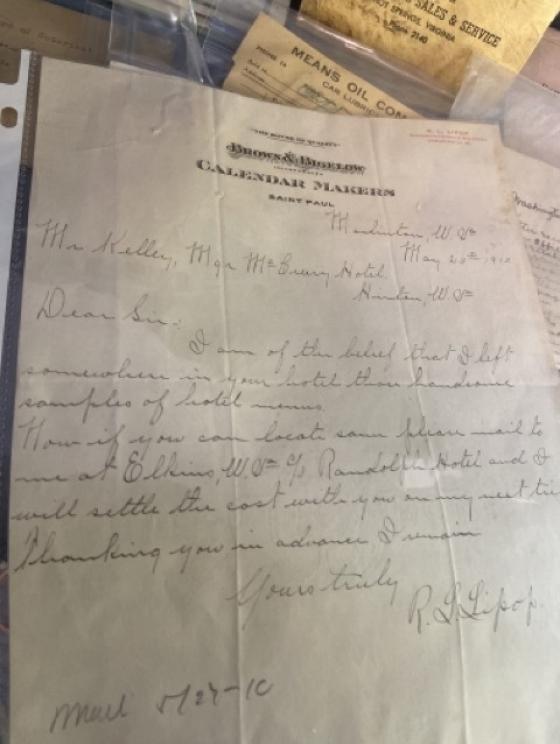 SALES & SERVICE
HOT SPRINGS, VIRGINIA
PHONE 2140
PHONE 74
MEANS OIL COM
CAR LUBRIC
"THE HOUSE OF QUALITY"
BROWN & BIGELOW
INCORPORATED
CALENDAR MAKERS
SAINT PAUL
R. L. LIPOP
Washington
Marlinton, W. Va
May 26th, 1910
Mr Kelley, Mgr McCreery Hotel
Hinton, W. Va
Dear Sir:
I am of the belief that I left
somewhere in your hotel those handsome
samples of hotel menus.
Now if you can locate same please mail to
me at Elkins, W. Va c/o Randolph Hotel and I
will settle the cost with you on my next tri
Thanking you in advance I remain
Yours truly
R. L. Lipop.
Mail 5/27-10